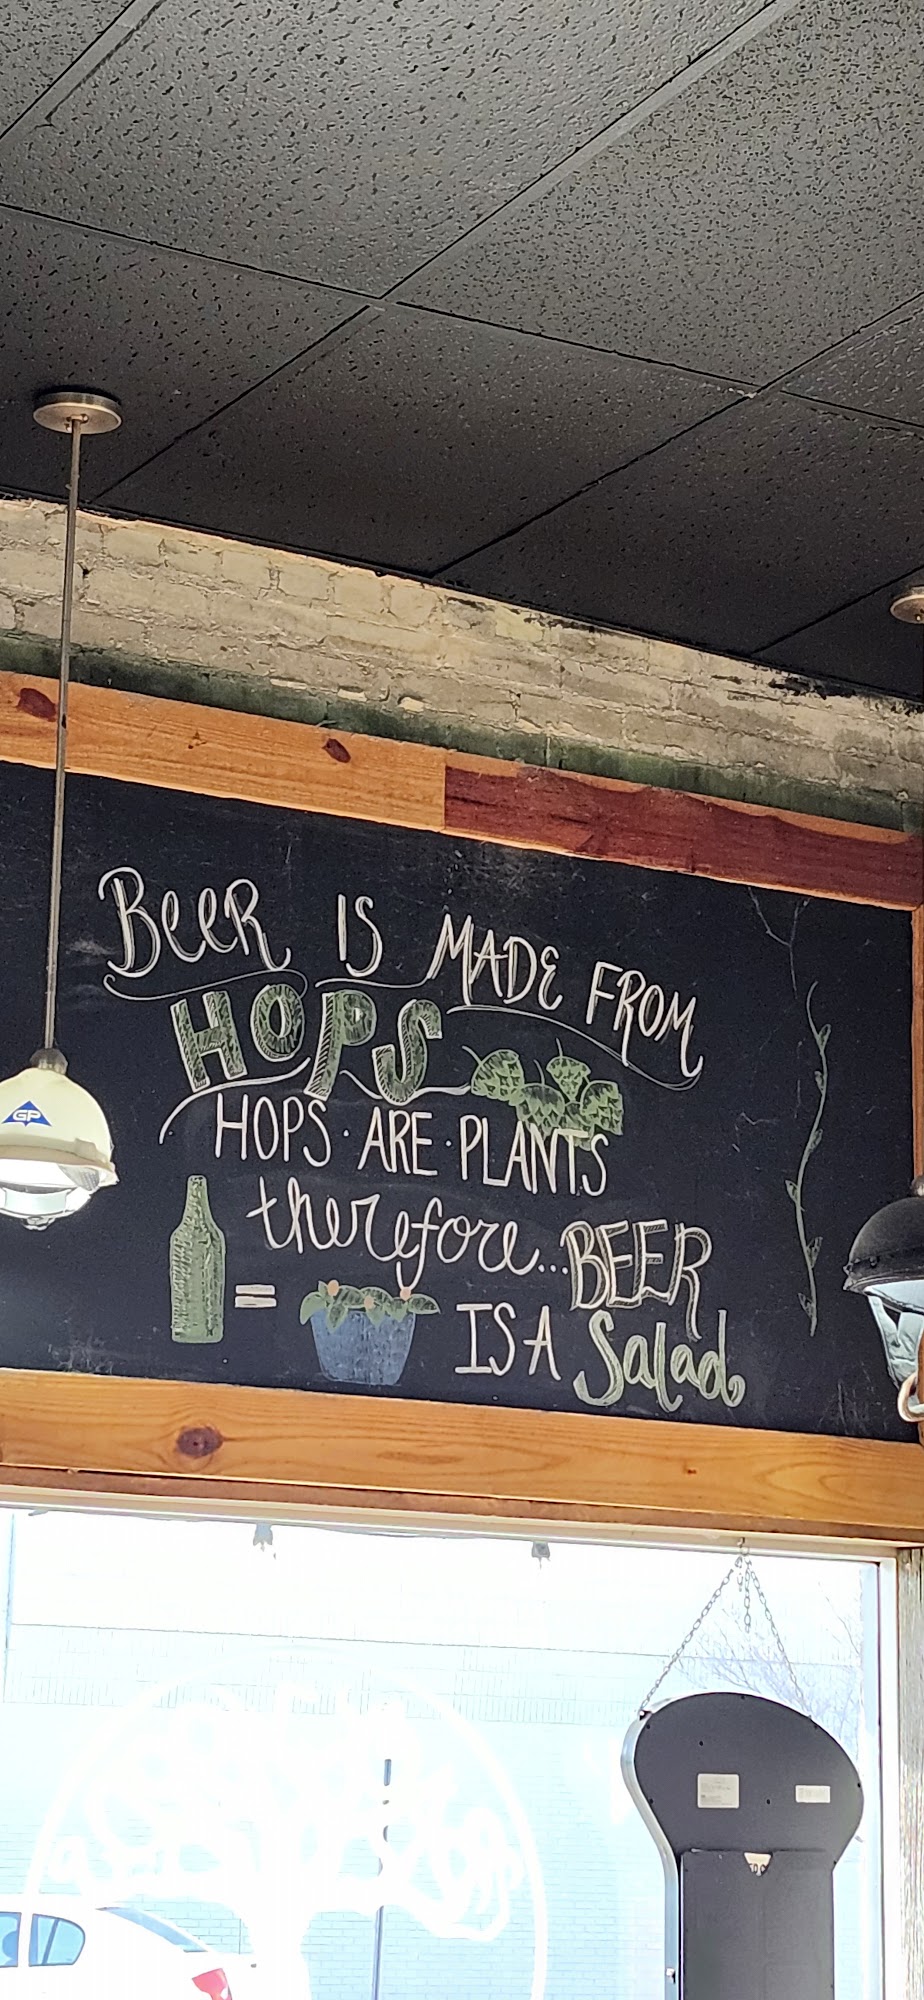 BeeR IS MADE FROM
HOPS
HOPS · ARE · PLANTS
therefore... BEER
=
IS A Salad
GP